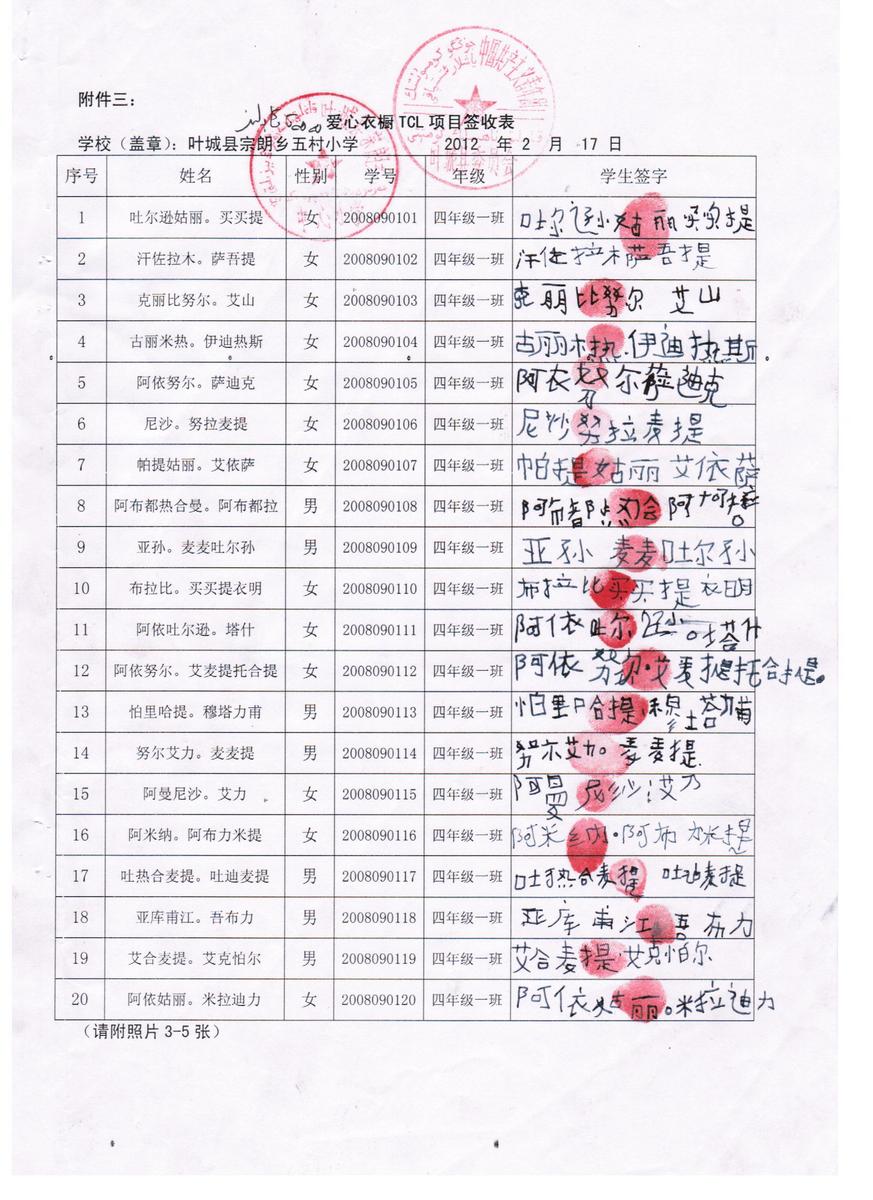 附件三：
爱心衣橱 TCL 项目签收表
学校（盖章）：叶城县宗朗乡五村小学 2012 年 2 月 17 日
序号 姓名 性别 学号 年级 学生签字
1 吐尔逊姑丽。买买提 女 2008090101 四年级一班 吐尔逊姑丽 买买提
2 汗佐拉木。萨吾提 女 2008090102 四年级一班 汗佐拉木萨吾提
3 克丽比努尔。艾山 女 2008090103 四年级一班 克丽比努尔 艾山
4 古丽米热。伊迪热斯 女 2008090104 四年级一班 古丽米热.伊迪热斯.
5 阿依努尔。萨迪克 女 2008090105 四年级一班 阿衣努尔萨迪克
6 尼沙。努拉麦提 女 2008090106 四年级一班 尼沙努拉麦提
7 帕提姑丽。艾依萨 女 2008090107 四年级一班 帕提姑丽艾依萨
8 阿布都热合曼。阿布都拉 男 2008090108 四年级一班
9 亚孙。麦麦吐尔孙 男 2008090109 四年级一班 亚孙 麦麦吐尔孙
10 布拉比。买买提衣明 女 2008090110 四年级一班 布拉比买买提衣明
11 阿依吐尔逊。塔什 女 2008090111 四年级一班 阿依吐尔逊。塔什
12 阿依努尔。艾麦提托合提 女 2008090112 四年级一班 阿依努尔.艾麦提托合提。
13 怕里哈提。穆塔力甫 男 2008090113 四年级一班 怕里哈提
14 努尔艾力。麦麦提 男 2008090114 四年级一班 努尔艾力。麦麦提.
15 阿曼尼沙。艾力 女 2008090115 四年级一班 阿曼尼沙艾力
16 阿米纳。阿布力米提 女 2008090116 四年级一班 阿米纳.阿布力米提
17 吐热合麦提。吐迪麦提 男 2008090117 四年级一班 吐热合麦提 吐迪麦提
18 亚库甫江。吾布力 男 2008090118 四年级一班 亚库甫江吾布力
19 艾合麦提。艾克怕尔 男 2008090119 四年级一班 艾合麦提.艾克怕尔
20 阿依姑丽。米拉迪力 女 2008090120 四年级一班 阿依姑丽。米拉迪力
（请附照片 3-5 张）